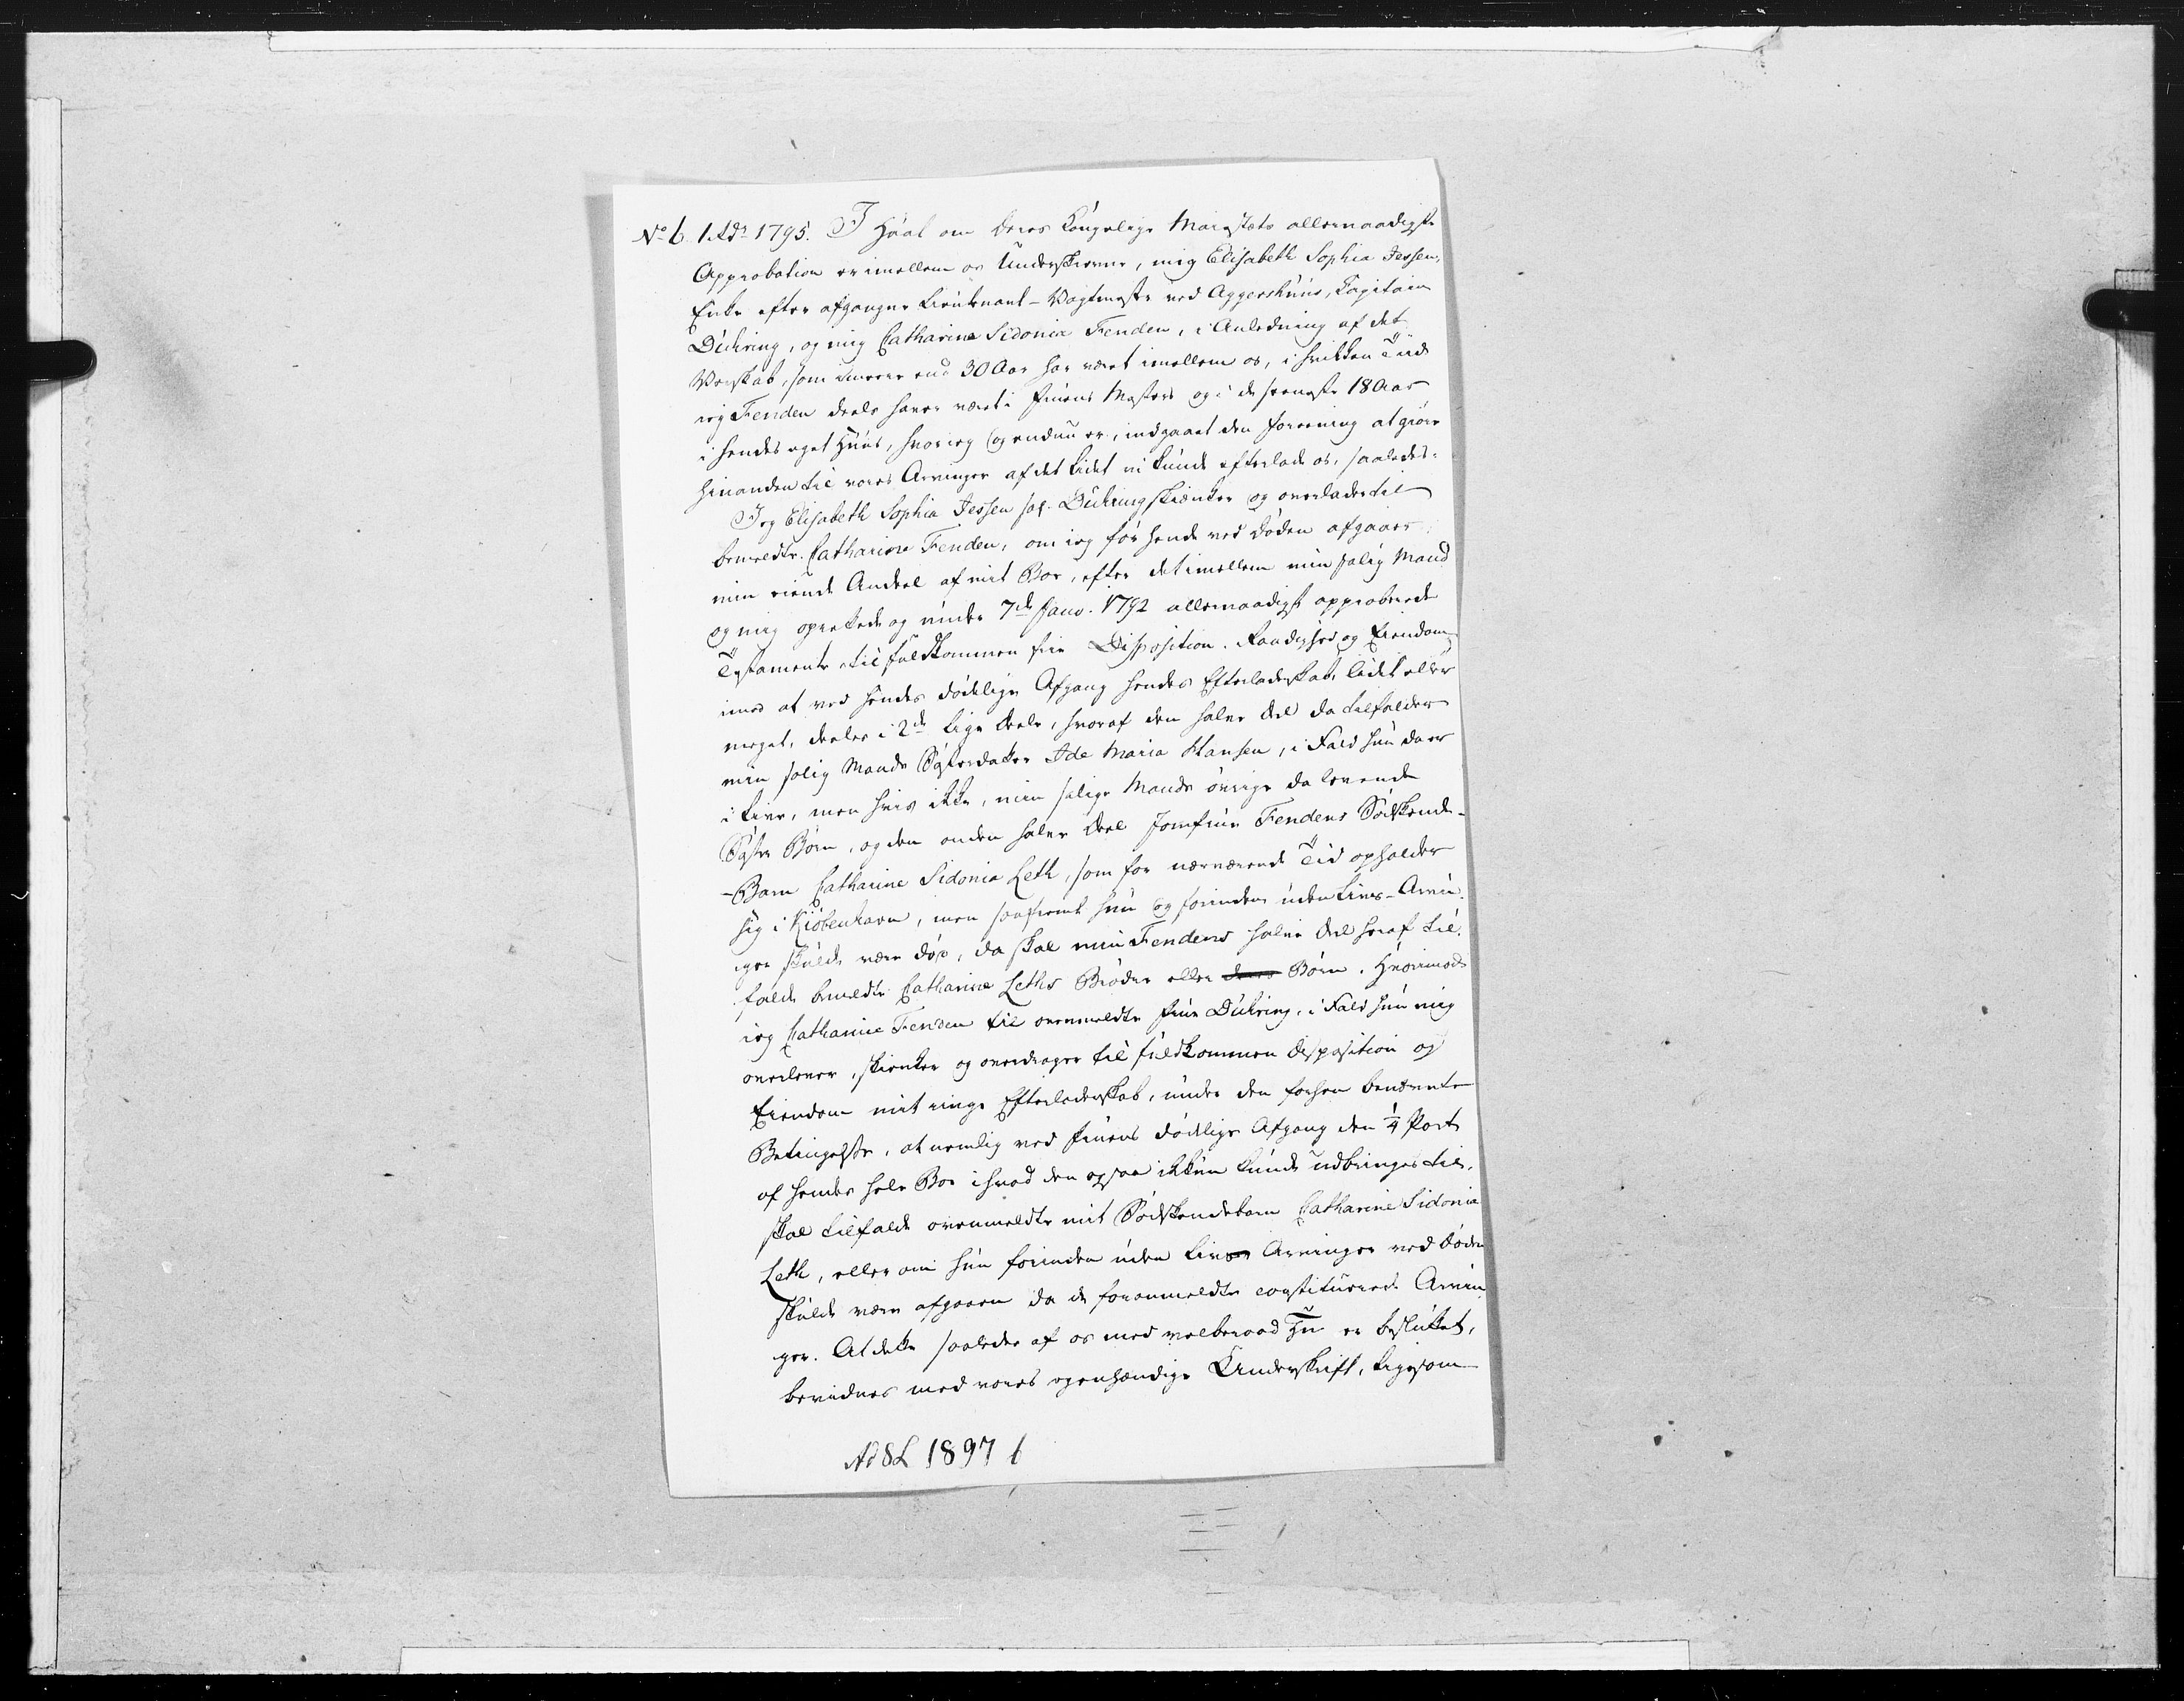 No 6. 1 Adr 1795. I Haab om Deres Kongelige Maiestæts allernaadigste
Approbation er imellem os Underskrevne, mig Elisabeth Sophia Jessen,
Enke efter afgangne Lieutenant-Vagtmester ved Aggershuus, Capitain
Dühring, og mig Catharina Sidonia Fenden, i Anledning af det
Venskab, som i meere end 30 Aar har været imellem os, i hvilken Tiid
ieg Fenden deels haver været i Fruens Moders og i de seeneste 18 Aar
i hendes eget Huus, hvor ieg og endnu er, indgaaet den Foreening at giøre
hinanden til vores Arvinger af det Lidet vi kunde efterlade os, saaledes:
Jeg Elisabeth Sophia Jessen sal. Dühring skienker og overlader til
bemeldte Catharina Fenden, om ieg før hende ved Døden afgaaer
min eiende Andeel af mit Boe, efter det imellem min salig Mand
og mig oprettede og under 7de Janv. 1792 allernaadigst approberede
Testamente til fuldkommen frie Disposition, Raadighed og Eiendom
imod at ved hendes dødelige Afgang hendes Efterladenskab, lidet eller
meget, deeles i 2de lige Deele, hvoraf den halve Deel da tilfalder
min salig Mands Søsterdatter Ide Maria Hansen, i Fald hun da er
i Live, men hvis ikke, min salige Mands øvrige da levende
Søster Børn, og den anden halve Deel Jomfrue Fendens Sødskende-
-Barn Catharina Sidonia Leth, som for nærværende Tid opholder
sig i Kiøbenhavn, men saafremt hun og forinden uden Livs-Arvin-
ger skulde være død, da skal min Fendens halve Deel heraf til-
falde bemeldte Catharina Leths Brødre eller deres Børn. Hvorimod
ieg Catharina Fenden til ovenmeldte Frue Dühring, i Fald hun mig
overlever, skienker og overdrager til fuldkommen Disposition og
Eiendom mit ringe Efterladenskab, under den forhen benævnte
Betingelse, at nemlig ved Fruens dødelige Afgang den 1/4 Part
af hendes hele Boe i hvad den ogsaa ikkun kunde udbringes til,
skal tilfalde ovenmeldte mit Sødskendebarn Catharina Sidonia
Leth, eller om hun forinden uden Livs Arvinger ved Døden
skulde være afgaaen da de foranmeldte constituerede Arvin
ger. At dette saaledes af os med velberaad Hu er besluttet,
bevidnes med vores egenhændige Underskrift, ligesom
Ad 8L 1897